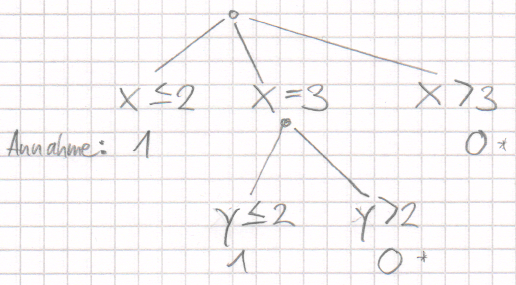 x ≤ 2 x = 3 x > 3
Annahme: 1 0 *
y ≤ 2 y > 2
1 0 *